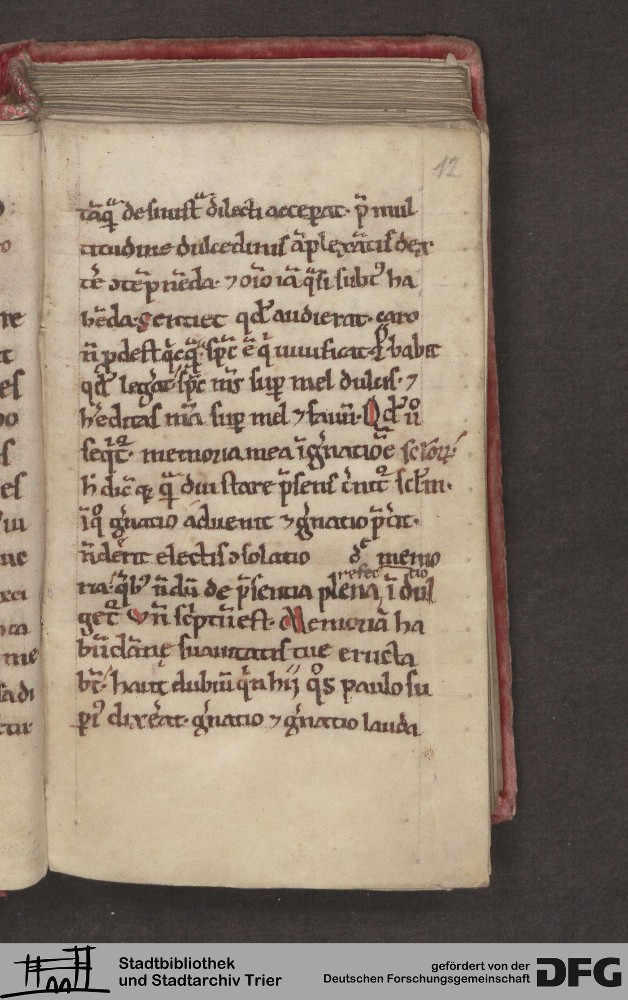 12
tāqͣ de sinistͣ dilecti acceperat. p̄ mul
titudine dulcedinis āplexātis dex
tē ↄtēpnēda. ⁊ oīo iā q̄si subtꝰ ha
bēda. Sentiet qđ audierat. caro
n̄ pdest qͥcqͣ. sp̄c ē qͥ uiuificat. ⁊ ꝓbabit
qđ legerat. sp̄c m̄s sup mel dulcis. ⁊
h̄editas m̄a sup mel ⁊ fauū. Qđ ū
seqͥtͬ. memoria mea ī gn̄atiōe sc̄loꝝ.
h̄ dic̄
qͣ diu stare p̄sens c̄nitͬ sc̄lm.
ī qͦ gn̄atio aduenit ⁊ gn̄atio p̄tit.
n̄ dērit electis ↄsolatio de memo
ria. qͥbꝰ n̄dū de p̄sentia plena refectio īdul
getͬ. Vn̄ sc̄ptū est. Memoriā ha
būdātię suauitatis tue eructa
bt̄. haut dubiū qͥn hij qͦs paulo su
piꝰ dixerat. gn̄atio ⁊ gn̄atio lauda
Stadtbibliothek
und Stadtarchiv Trier
gefördert von der
Deutschen Forschungsgemeinschaft
DFG